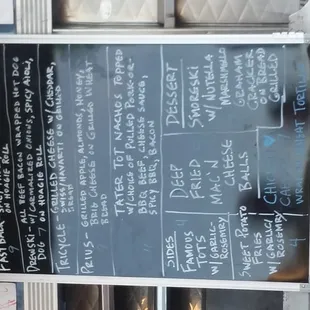 FAST BACK
ON HOAGIE ROLL
DREWSKI - ALL BEEF BACON WRAPPED HOT DOG
W/ CARAMELIZED ONIONS, SPICY AIOLI,
ON HOAGIE ROLL
TRICYCLE - GRILLED CHEESE W/ CHEDDAR,
SWISS, HAVARTI ON GRILLED
BREAD
PRIUS - GRILLED APPLE, ALMONDS, HONEY,
BRIE CHEESE ON GRILLED WHEAT
BREAD
TATER TOT NACHOS TOPPED
W/ CHOICE OF PULLED PORK-OR-
BBQ BEEF, CHEESE SAUCE,
SPICY BBQ, BACON
SIDES
FAMOUS
TOTS
W/ GARLIC-
ROSEMRY
4
SWEET POTATO
FRIES
W/ GARLIC
ROSEMRY
4
DEEP
FRIED
MAC'N
CHEESE
BALLS
DESSERT
SMORESKI
W/ NUTELLA
MARSHMALLO
GRAHAM
CRACKER
ON BREAD
GRILLED
WHEAT TORTILLA